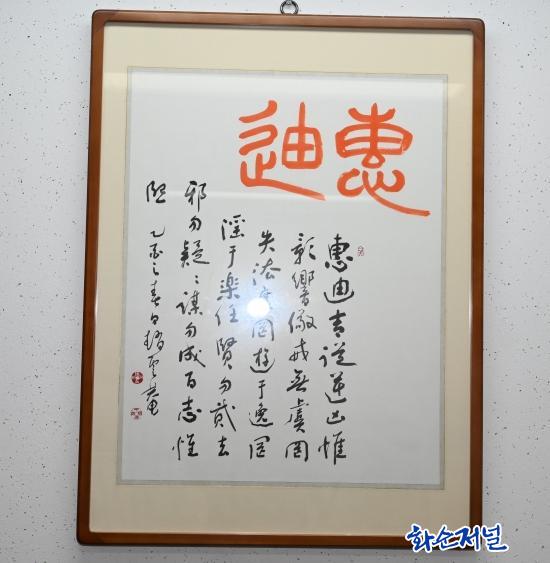 惠迪
惠迪吉從逆凶惟
影響儆戒無虞罔
失法度罔遊于逸罔
淫于楽任賢勿貳去
邪勿疑〻謀勿成百志惟
熙 乙酉之春日
화순저널